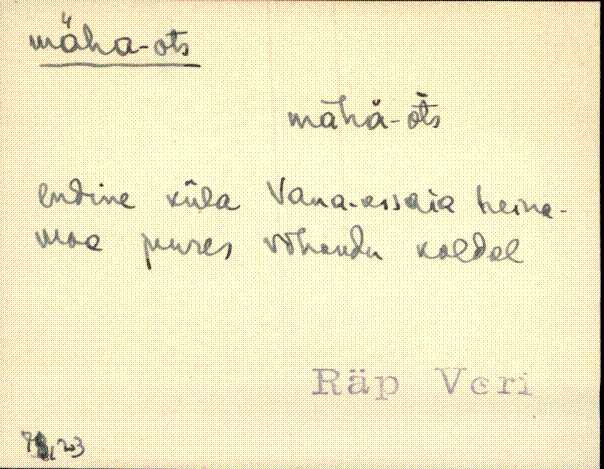 mäha-ots
mähä-õts
endine küla Vana-assaia heina-
maa juures Võhandu kaldal
Räp Veri